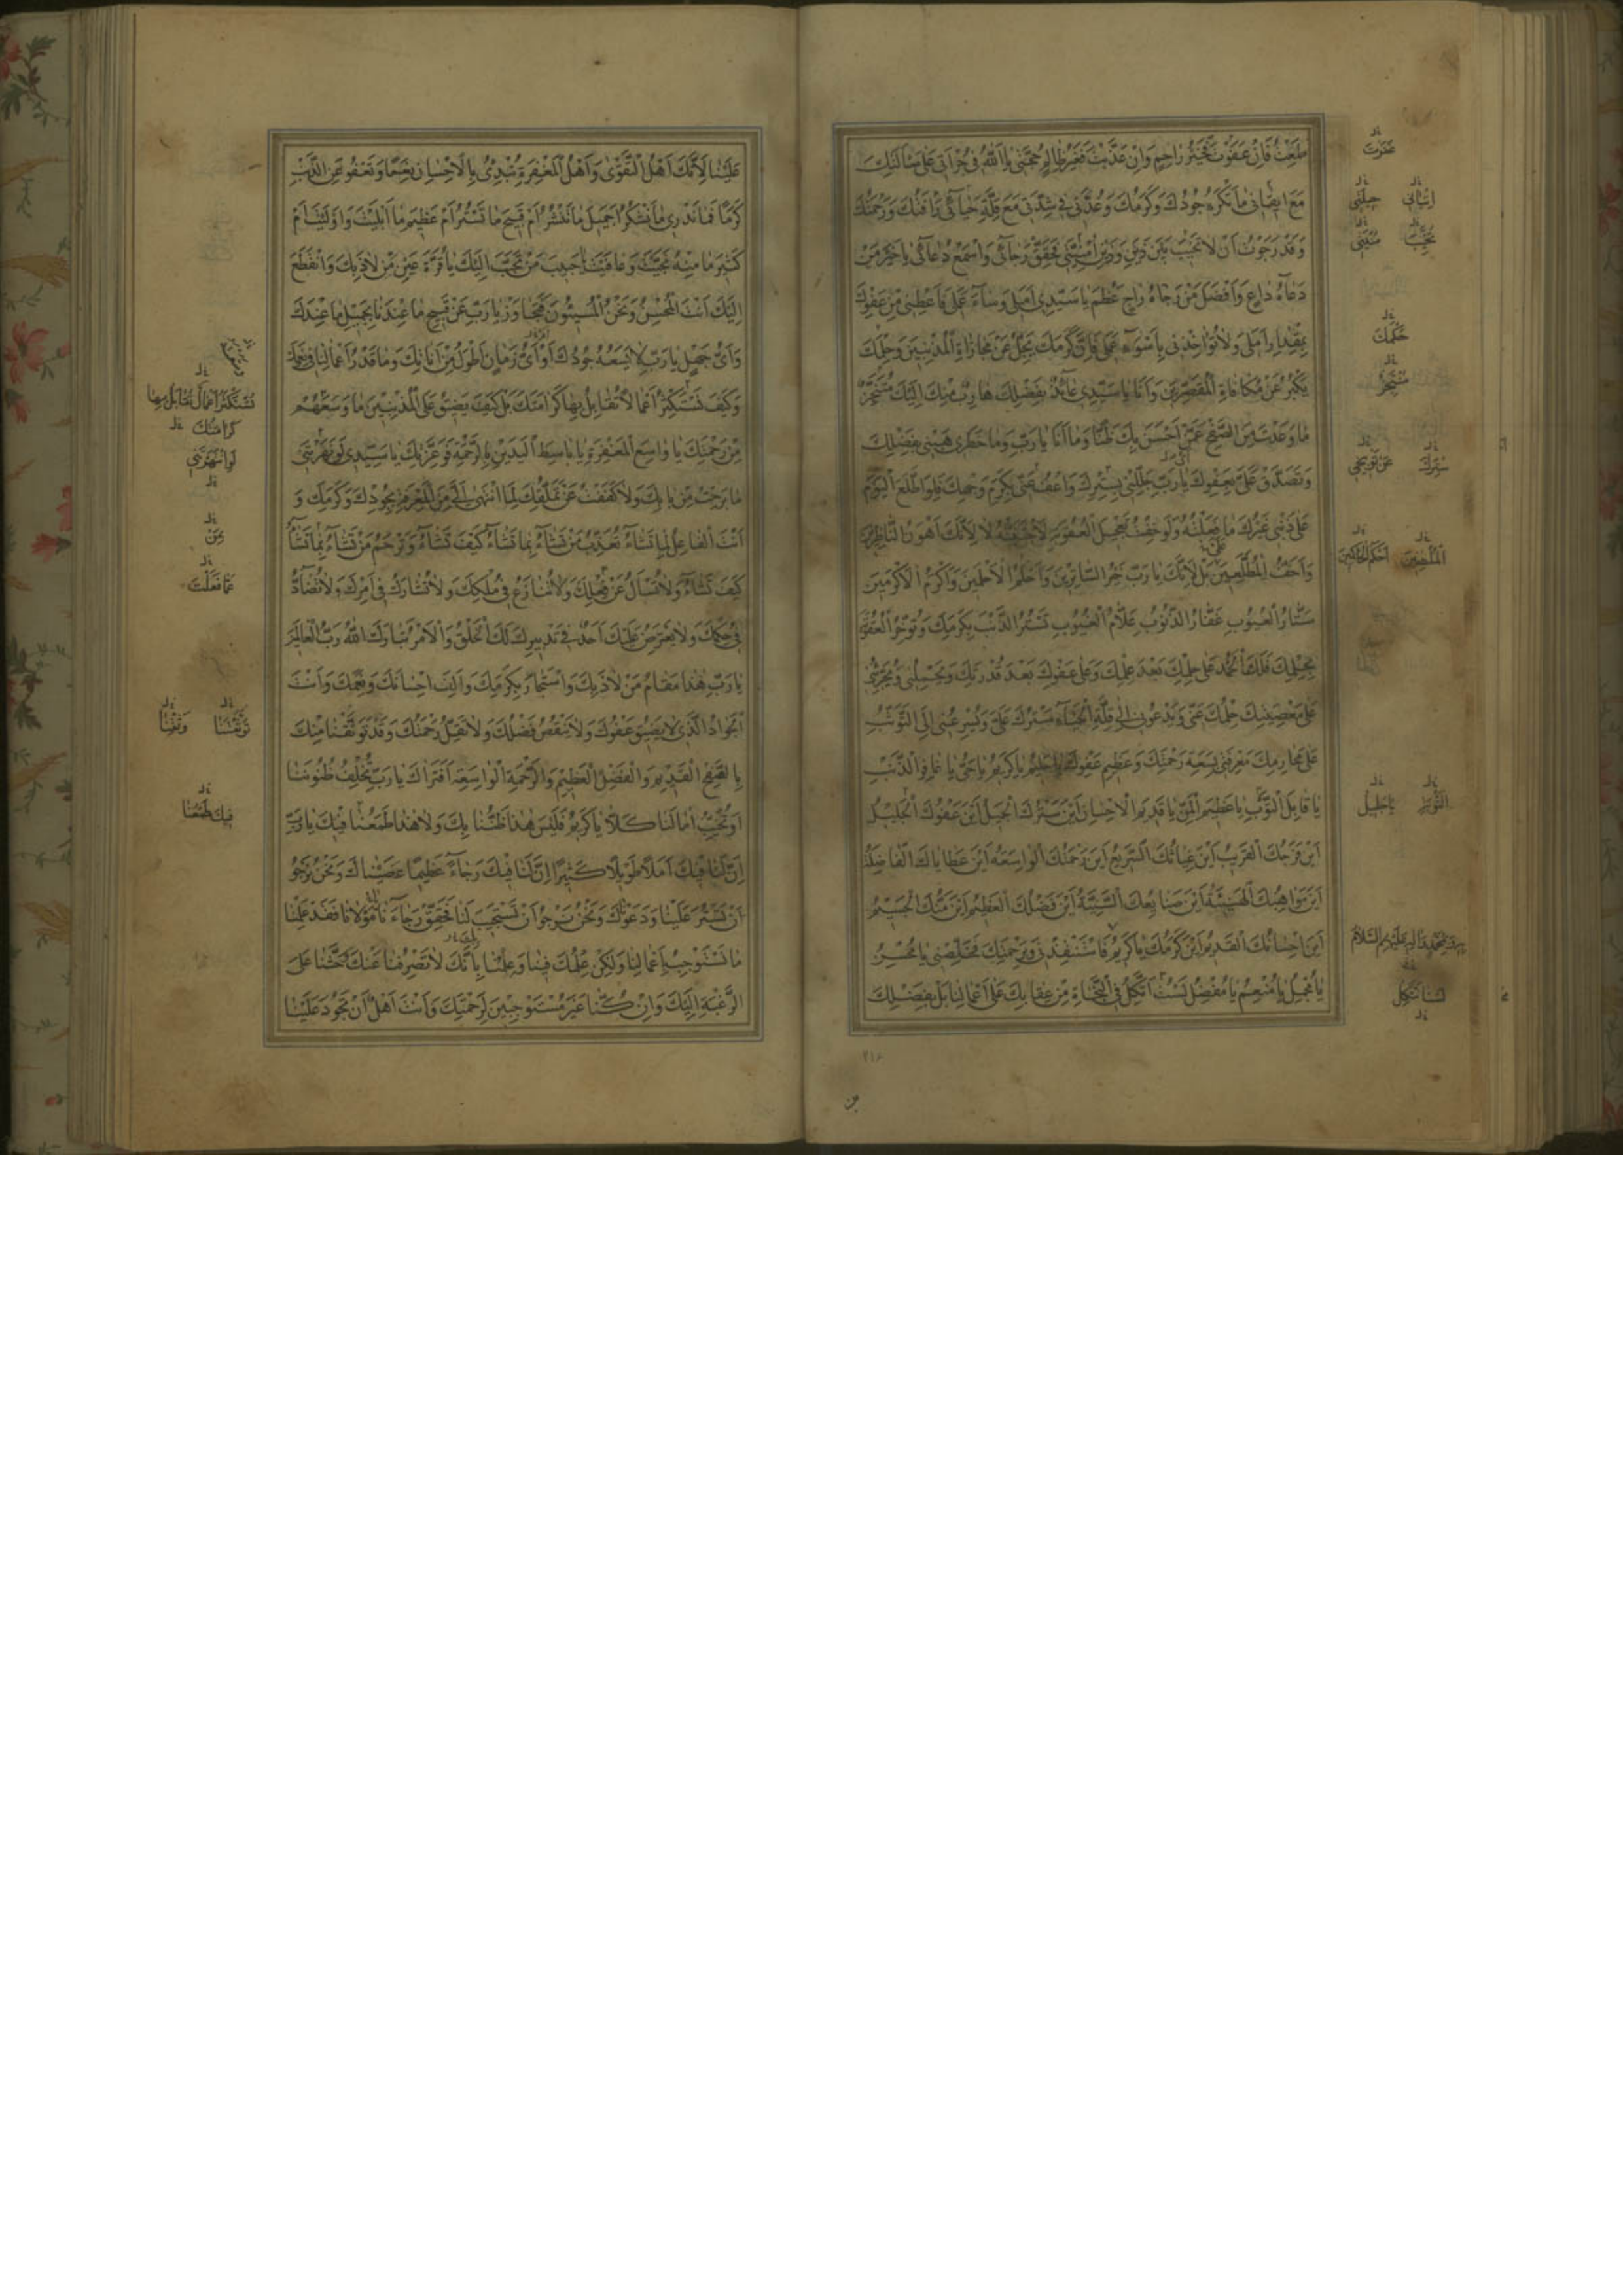 طَمِعْتُ فَاِنْ عَفَوْتَ فَخَيْرُ رَاحِمٍ وَاِنْ عَذَّبْتَ فَغَيْرُ ظَالِمٍ حُجَّتِي يَا اَللّٰهُ فِي جُرْاَتِي عَلَى مَسْاَلَتِكَ
مَعَ اِتْيَانِي مَا تَكْرَهُ جُودُكَ وَكَرَمُكَ وَعُدَّتِي فِي شِدَّتِي مَعَ قِلَّةِ حَيَائِي رَأْفَتُكَ وَرَحْمَتُكَ
وَقَدْ رَجَوْتُ اَنْ لَا تُخَيِّبَ بَيْنَ ذَيْنِ وَذَيْنِ مُنْيَتِي فَحَقِّقْ رَجَائِي وَاسْمَعْ دُعَائِي يَا خَيْرَ مَنْ
دَعَاهُ دَاعٍ وَاَفْضَلَ مَنْ رَجَاهُ رَاجٍ عَظُمَ يَا سَيِّدِي اَمَلِي وَسَاءَ عَمَلِي فَاَعْطِنِي مِنْ عَفْوِكَ
بِمِقْدَارِ اَمَلِي وَلَا تُؤَاخِذْنِي بِاَسْوَءِ عَمَلِي فَاِنَّ كَرَمَكَ يَجِلُّ عَنْ مُجَازَاةِ الْمُذْنِبِينَ وَحِلْمَكَ
يَكْبُرُ عَنْ مُكَافَاةِ الْمُقَصِّرِينَ وَاَنَا يَا سَيِّدِي عَائِذٌ بِفَضْلِكَ هَارِبٌ مِنْكَ اِلَيْكَ مُتَنَجِّزٌ
مَا وَعَدْتَ مِنَ الصَّفْحِ عَمَّنْ اَحْسَنَ بِكَ ظَنًّا وَمَا اَنَا يَا رَبِّ وَمَا خَطَرِي هَبْنِي بِفَضْلِكَ
وَتَصَدَّقْ عَلَيَّ بِعَفْوِكَ يَا رَبِّ جَلِّلْنِي بِسِتْرِكَ وَاعْفُ عَنِّي بِكَرَمِ وَجْهِكَ فَلَوِ اطَّلَعَ الْيَوْمَ
عَلَى ذَنْبِي غَيْرُكَ مَا فَعَلْتُهُ وَلَوْ خِفْتُ تَعْجِيلَ الْعُقُوبَةِ لَاجْتَنَبْتُهُ لَا لِاَنَّكَ اَهْوَنُ النَّاظِرِينَ
وَاَخَفُّ الْمُطَّلِعِينَ بَلْ لِاَنَّكَ يَا رَبِّ خَيْرُ السَّاتِرِينَ وَاَحْلَمُ الْاَحْلَمِينَ وَاَكْرَمُ الْاَكْرَمِينَ
سَتَّارُ الْعُيُوبِ غَفَّارُ الذُّنُوبِ عَلَّامُ الْغُيُوبِ تَسْتُرُ الذَّنْبَ بِكَرَمِكَ وَتُؤَخِّرُ الْعُقُوبَةَ
بِحِلْمِكَ فَلَكَ الْحَمْدُ عَلَى حِلْمِكَ بَعْدَ عِلْمِكَ وَعَلَى عَفْوِكَ بَعْدَ قُدْرَتِكَ وَيَحْمِلُنِي وَيُجَرِّئُنِي
عَلَى مَعْصِيَتِكَ حِلْمُكَ عَنِّي وَيَدْعُونِي اِلَى قِلَّةِ الْحَيَاءِ سَتْرُكَ عَلَيَّ وَيُسْرِعُنِي اِلَى التَّوَثُّبِ
عَلَى مَحَارِمِكَ مَعْرِفَتِي بِسَعَةِ رَحْمَتِكَ وَعَظِيمِ عَفْوِكَ يَا حَلِيمُ يَا كَرِيمُ يَا حَيُّ يَا غَافِرَ الذَّنْبِ
يَا قَابِلَ التَّوْبِ يَا عَظِيمَ الْمَنِّ يَا قَدِيمَ الْاِحْسَانِ اَيْنَ سَتْرُكَ الْجَمِيلُ اَيْنَ عَفْوُكَ الْجَلِيلُ
اَيْنَ فَرَجُكَ الْقَرِيبُ اَيْنَ غِيَاثُكَ السَّرِيعُ اَيْنَ رَحْمَتُكَ الْوَاسِعَةُ اَيْنَ عَطَايَاكَ الْفَاضِلَةُ
اَيْنَ مَوَاهِبُكَ الْهَنِيئَةُ اَيْنَ صَنَايِعُكَ السَّنِيَّةُ اَيْنَ فَضْلُكَ الْعَظِيمُ اَيْنَ مَنُّكَ الْجَسِيمُ
اَيْنَ اِحْسَانُكَ الْقَدِيمُ اَيْنَ كَرَمُكَ يَا كَرِيمُ فَاسْتَنْقِذْنِي وَبِرَحْمَتِكَ فَخَلِّصْنِي يَا مُحْسِنُ
يَا مُجْمِلُ يَا مُنْعِمُ يَا مُفْضِلُ لَسْتُ اَتَّكِلُ فِي النَّجَاةِ مِنْ عِقَابِكَ عَلَى اَعْمَالِنَا بَلْ بِفَضْلِكَ
غَفَرْتَ
حِيلَتِي
حِلْمَكَ
مُتَنَجِّزٌ
سِتْرَكَ
عَنْ تَوْبِيخِي
يَا جَلِيلُ
لَسْنَا نَتَّكِلُ
٢١٤
عَلَيْنَا لِاَنَّكَ اَهْلُ التَّقْوٰى وَاَهْلُ الْمَغْفِرَةِ تُبْدِئُ بِالْاِحْسَانِ نِعَمًا وَتَعْفُو عَنِ الذَّنْبِ
كَرَمًا فَمَا نَدْرِي مَا نَشْكُرُ اَجَمِيلَ مَا تَنْشُرُ اَمْ قَبِيحَ مَا تَسْتُرُ اَمْ عَظِيمَ مَا اَبْلَيْتَ وَاَوْلَيْتَ اَمْ
كَثِيرَ مَا مِنْهُ نَجَّيْتَ وَعَافَيْتَ يَا حَبِيبَ مَنْ تَحَبَّبَ اِلَيْكَ يَا قُرَّةَ عَيْنِ مَنْ لَاذَ بِكَ وَانْقَطَعَ
اِلَيْكَ اَنْتَ الْمُحْسِنُ وَنَحْنُ الْمُسِيئُونَ فَتَجَاوَزْ يَا رَبِّ عَنْ قَبِيحِ مَا عِنْدَنَا بِجَمِيلِ مَا عِنْدَكَ
وَاَيُّ جَهْلٍ يَا رَبِّ لَا يَسَعُهُ جُودُكَ اَوْ اَيُّ زَمَانٍ اَطْوَلُ مِنْ اَنَاتِكَ وَمَا قَدْرُ اَعْمَالِنَا فِي نِعَمِكَ
وَكَيْفَ نَسْتَكْثِرُ اَعْمَالًا نُقَابِلُ بِهَا كَرَامَتَكَ بَلْ كَيْفَ يَضِيقُ عَلَى الْمُذْنِبِينَ مَا وَسِعَهُمْ
مِنْ رَحْمَتِكَ يَا وَاسِعَ الْمَغْفِرَةِ يَا بَاسِطَ الْيَدَيْنِ بِالرَّحْمَةِ فَوَعِزَّتِكَ يَا سَيِّدِي لَوْ نَهَرْتَنِي
مَا بَرِحْتُ مِنْ بَابِكَ وَلَا كَفَفْتُ عَنْ تَمَلُّقِكَ لِمَا انْتَهٰى اِلَيَّ مِنَ الْمَعْرِفَةِ بِجُودِكَ وَكَرَمِكَ وَ
اَنْتَ الْفَاعِلُ لِمَا تَشَاءُ تُعَذِّبُ مَنْ تَشَاءُ بِمَا تَشَاءُ كَيْفَ تَشَاءُ وَتَرْحَمُ مَنْ تَشَاءُ بِمَا تَشَاءُ
كَيْفَ تَشَاءُ وَلَا تُسْاَلُ عَنْ فِعْلِكَ وَلَا تُنَازَعُ فِي مُلْكِكَ وَلَا تُشَارَكُ فِي اَمْرِكَ وَلَا تُضَادُّ
فِي حُكْمِكَ وَلَا يَعْتَرِضُ عَلَيْكَ اَحَدٌ فِي تَدْبِيرِكَ لَكَ الْخَلْقُ وَالْاَمْرُ تَبَارَكَ اللّٰهُ رَبُّ الْعَالَمِينَ
يَا رَبِّ هٰذَا مَقَامُ مَنْ لَاذَ بِكَ وَاسْتَجَارَ بِكَرَمِكَ وَاَلِفَ اِحْسَانَكَ وَنِعَمَكَ وَاَنْتَ
الْجَوَادُ الَّذِي لَا يَضِيقُ عَفْوُكَ وَلَا يَنْقُصُ فَضْلُكَ وَلَا تَقِلُّ رَحْمَتُكَ وَقَدْ تَوَثَّقْنَا مِنْكَ
بِالصَّفْحِ الْقَدِيمِ وَالْفَضْلِ الْعَظِيمِ وَالرَّحْمَةِ الْوَاسِعَةِ اَفَتَرَاكَ يَا رَبِّ تُخْلِفُ ظُنُونَنَا
اَوْ تُخَيِّبُ اٰمَالَنَا كَلَّا يَا كَرِيمُ فَلَيْسَ هٰذَا ظَنُّنَا بِكَ وَلَا هٰذَا طَمَعُنَا فِيكَ يَا رَبِّ
اِنَّ لَنَا فِيكَ اَمَلًا طَوِيلًا كَثِيرًا اِنَّ لَنَا فِيكَ رَجَاءً عَظِيمًا عَصَيْنَاكَ وَنَحْنُ نَرْجُو
اَنْ تَسْتُرَ عَلَيْنَا وَدَعَوْنَاكَ وَنَحْنُ نَرْجُو اَنْ تَسْتَجِيبَ لَنَا فَحَقِّقْ رَجَاءَنَا مَوْلَانَا فَقَدْ عَلِمْنَا
مَا نَسْتَوْجِبُ بِاَعْمَالِنَا وَلٰكِنْ عِلْمُكَ فِينَا وَعِلْمُنَا بِاَنَّكَ لَا تَصْرِفُنَا عَنْكَ حَثَّنَا عَلَى
الرَّغْبَةِ اِلَيْكَ وَاِنْ كُنَّا غَيْرَ مُسْتَوْجِبِينَ لِرَحْمَتِكَ وَاَنْتَ اَهْلٌ اَنْ تَجُودَ عَلَيْنَا
نَسْتَكْثِرُ اَعْمَالًا نُقَابِلُ بِهَا
كَرَامَتَكَ
لَوِ انْتَهَرْتَنِي
مَنْ
عَمَّا فَعَلْتَ
تَوَثُّقَنَا
وَثِقْنَا
فِيكَ طَمَعُنَا